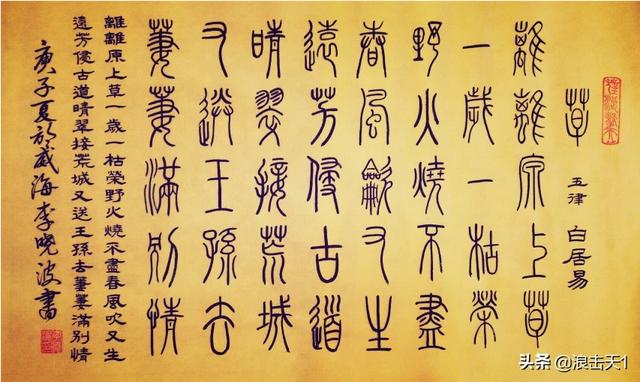 草
五律 白居易
離離原上草
一歲一枯榮
野火燒不盡
春風龡又生
遠芳侵古道
晴翠接荒城
又送王孫去
萋萋滿別情
離離原上草一歲一枯榮野火燒不盡春風吹又生
遠芳侵古道晴翠接荒城又送王孫去萋萋滿別情
庚子夏於威海李晓波書
头条 @浪击天1